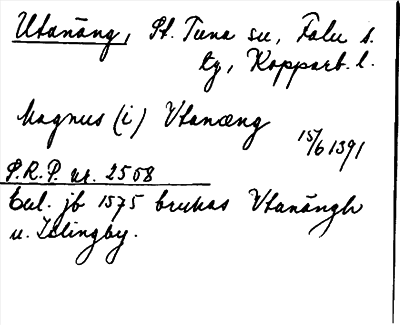 Utanäng, St. Tuna sn, Falu s.
tg, Kopparb. l.
Magnus (i) Vtanæng 15/6 1391
S.R.P. nr. 2508
Enl. jb 1575 brukas Vtanängh
u. Islingby.